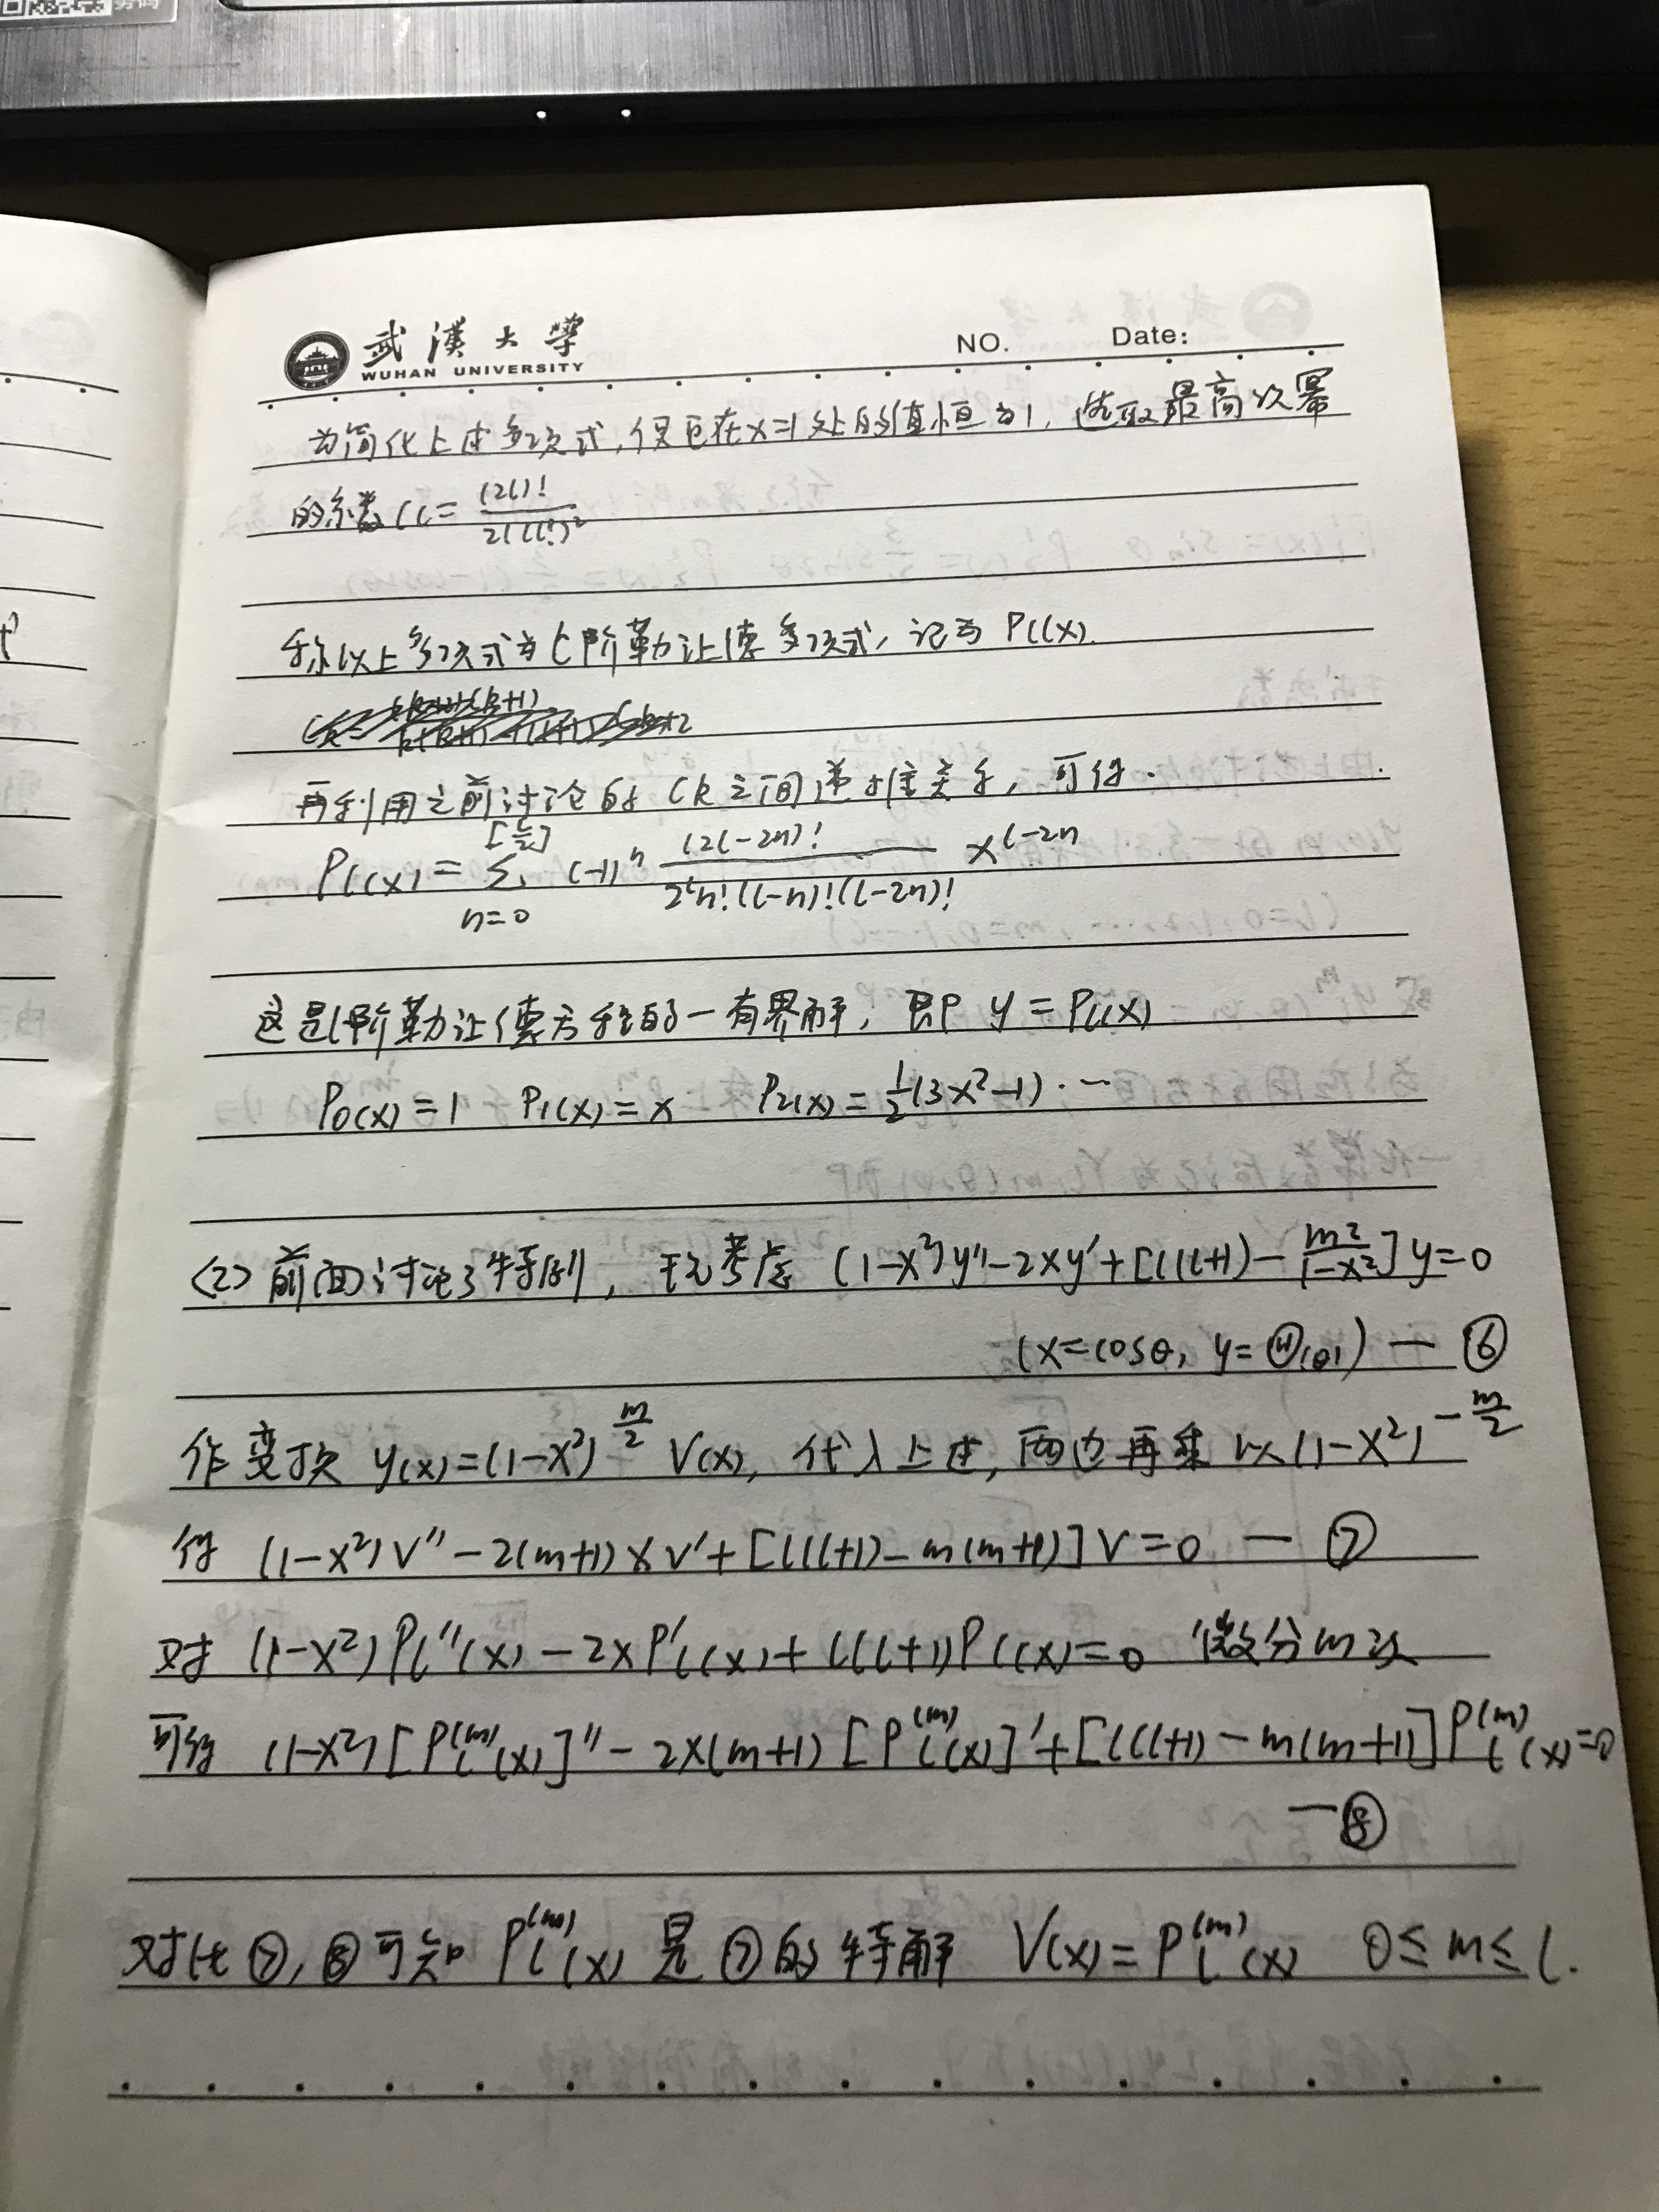 武漢大學
WUHAN UNIVERSITY
NO. Date:
为简化上述多项式,使它在x=1处的值恒为1,选取最高次幂
的系数 Cl = (2l)! / 2^l(l!)²
称以上多项式为l阶勒让德多项式,记为 Pl(x).
再利用之前讨论的 Ck 之间递推关系,可得.
Pl(x) = Σ_{n=0}^{[l/2]} (-1)^n (2l-2n)! / 2^l n!(l-n)!(l-2n)! x^{l-2n}
这是l阶勒让德方程的一有界解,即 y = Pl(x)
P0(x) = 1 P1(x) = x P2(x) = 1/2(3x²-1)...
(2) 前面讨论了特例,现考虑 (1-x²)y''-2xy'+[l(l+1)-m²/(1-x²)]y=0
(x=cosθ, y=Θ(θ)) — ⑥
作变换 y(x)=(1-x²)^{m/2} V(x), 代入上述,两边再乘以(1-x²)^{-m/2}
得 (1-x²)V'' - 2(m+1)xV' + [l(l+1)-m(m+1)]V = 0 — ⑦
对 (1-x²)Pl''(x) - 2xP'l(x) + l(l+1)Pl(x)=0 微分m次
可得 (1-x²)[Pl^{(m)}(x)]'' - 2x(m+1)[Pl^{(m)}(x)]' + [l(l+1)-m(m+1)]Pl^{(m)}(x)=0
— ⑧
对比⑦,⑧可知 Pl^{(m)}(x) 是⑦的特解 V(x) = Pl^{(m)}(x) 0≤m≤l.